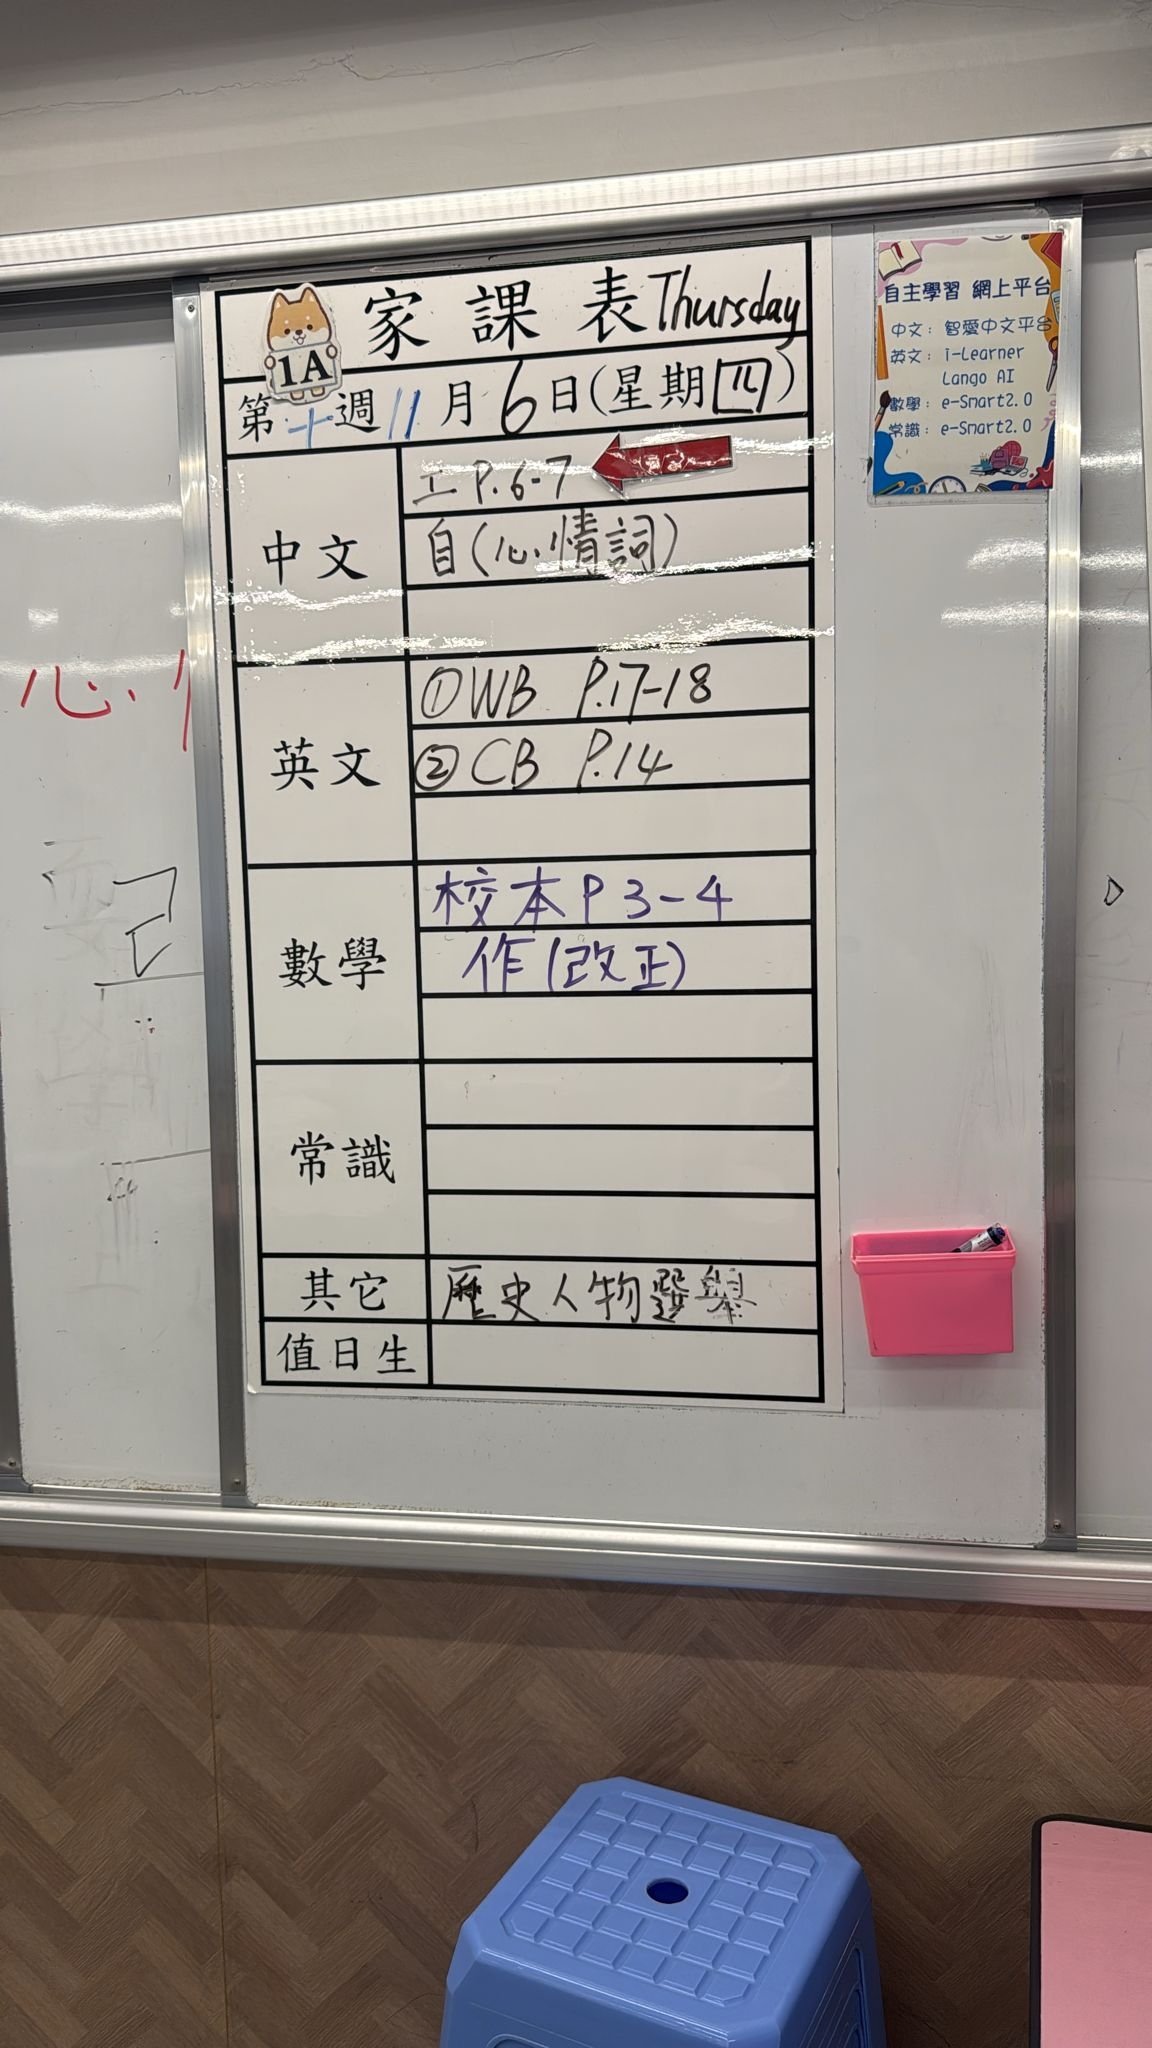 家課表 Thursday
1A
第十週 11月6日(星期四)
中文
工 P.6-7
自(心情詞)
英文
①WB P.17-18
②CB P.14
數學
校本 P 3-4
作(改正)
常識
其它
歷史人物選舉
值日生
自主學習 網上平台
中文：智愛中文平台
英文：i-Learner
Lango AI
數學：e-Smart2.0
常識：e-Smart2.0
心